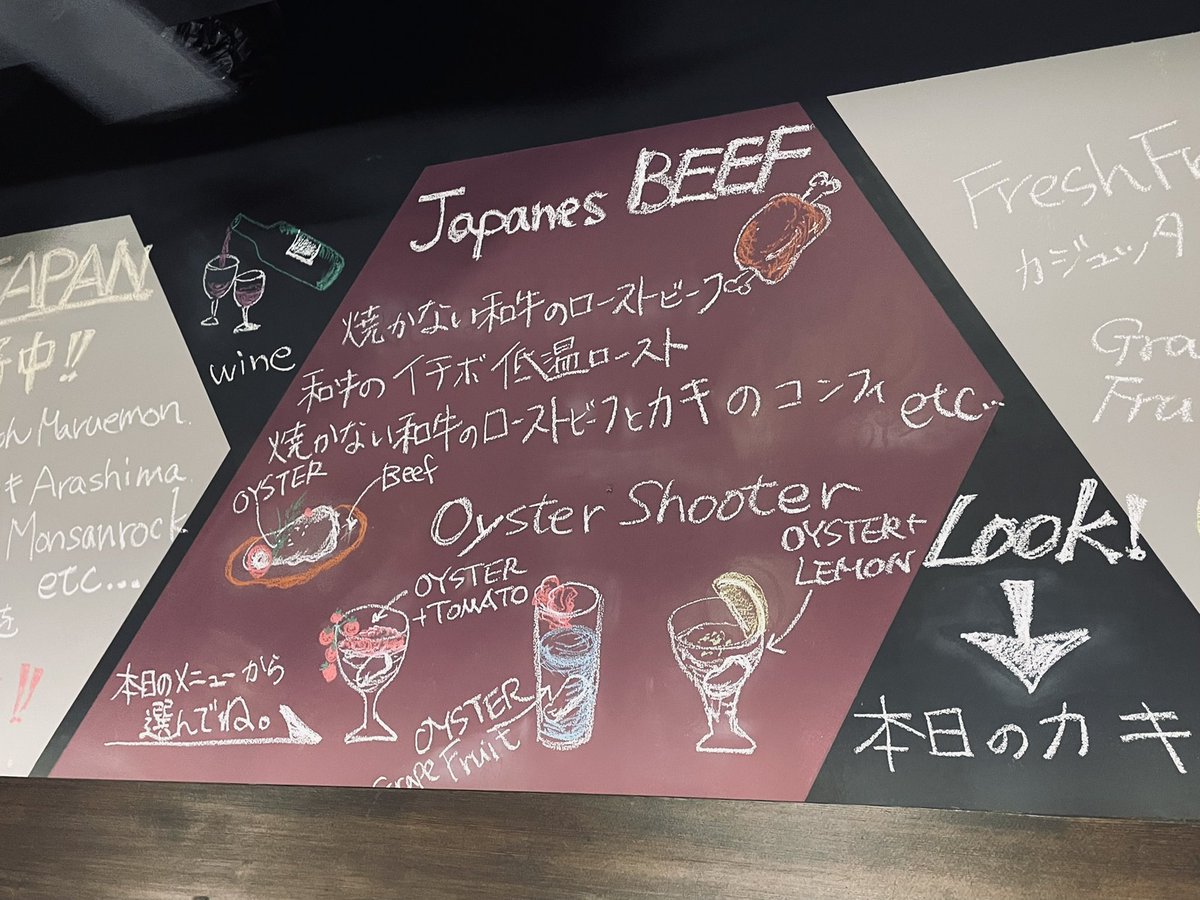 JAPAN
中!!
Maruemon
キ Arashima
Monsanrock
etc...
を
!!
wine
Japanes BEEF
焼かない和牛のローストビーフ
和牛のイチボ低温ロースト
焼かない和牛のローストビーフとカキのコンフィ etc...
OYSTER
Beef
Oyster Shooter
OYSTER
+TOMATO
OYSTER+
LEMON
OYSTER
Grape Fruit
本日のメニューから
選んでね。
Fresh
カジュッタ
Look!
本日のカキ